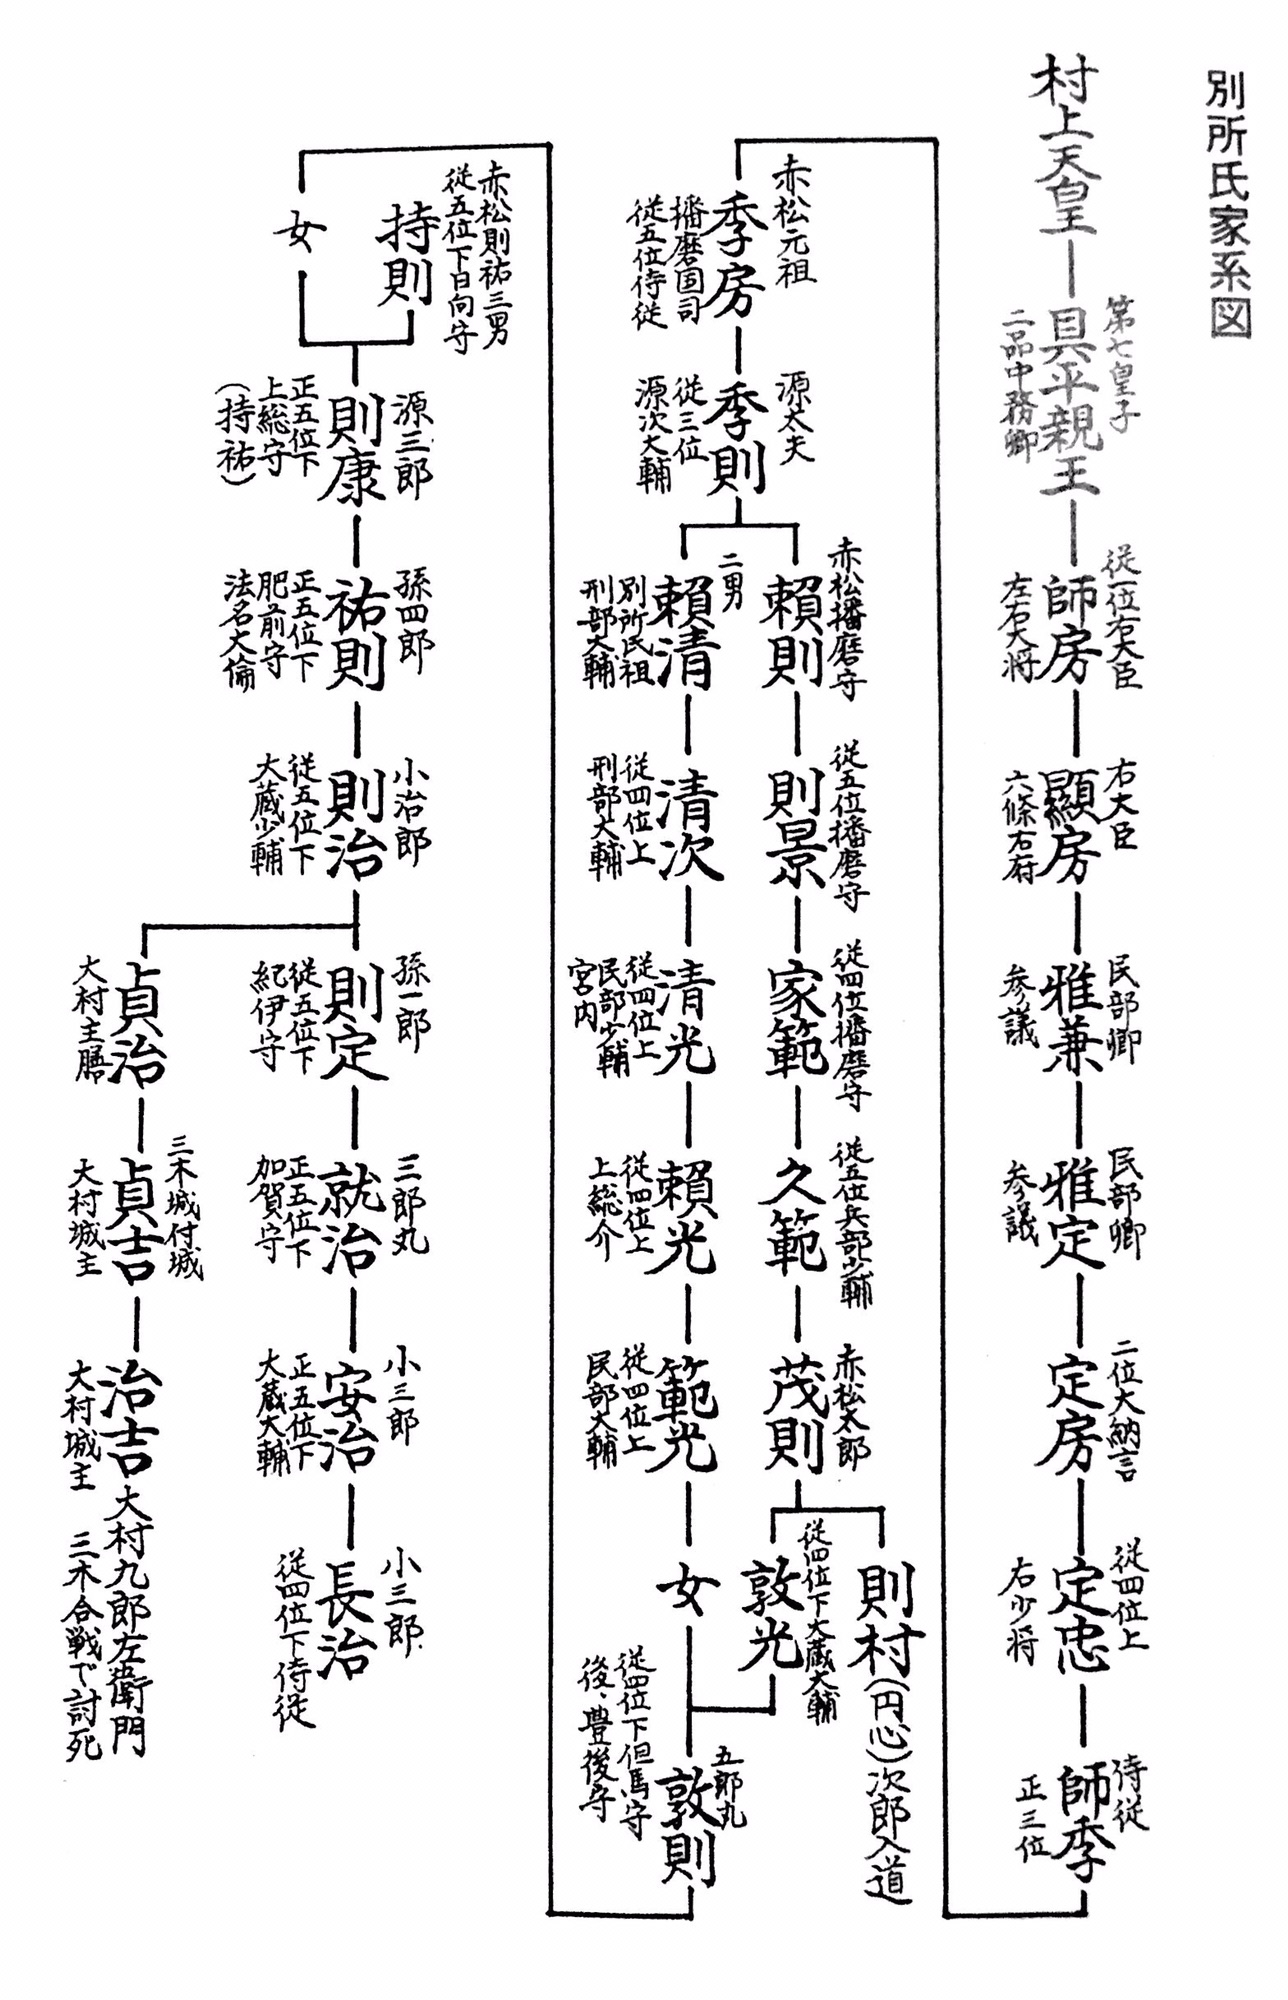 別所氏家系図
村上天皇
第七皇子
具平親王
二品中務卿
従一位右大臣
師房
左右大将
右大臣
顯房
六條右府
民部卿
雅兼
参議
民部卿
雅定
参議
二位大納言
定房
従四位上
定忠
右少将
侍従
師季
正三位
赤松元祖
季房
播磨国司
従五位侍従
源太夫
季則
従三位
源次大輔
赤松播磨守
頼則
従五位播磨守
則景
従四位播磨守
家範
従五位兵部少輔
久範
赤松太郎
茂則
則村(円心)次郎入道
従四位下大蔵大輔
敦光
二男
頼清
別所氏祖
刑部大輔
清次
従四位上
刑部大輔
清光
従四位上
民部少輔
宮内
頼光
従四位上
上総介
範光
従四位上
民部大輔
女
五郎丸
敦則
従四位下但馬守
後、豊後守
赤松則祐三男
従五位下日向守
持則
女
源三郎
則康
正五位下
上総守
(持祐)
孫四郎
祐則
正五位下
肥前守
法名大倫
小治郎
則治
従五位下
大蔵少輔
孫一郎
則定
従五位下
紀伊守
三郎丸
就治
正五位下
加賀守
小三郎
安治
正五位下
大蔵大輔
小三郎
長治
従四位下侍従
貞治
大村主膳
三木城付城
貞吉
大村城主
治吉 大村九郎左衛門
大村城主 三木合戦で討死